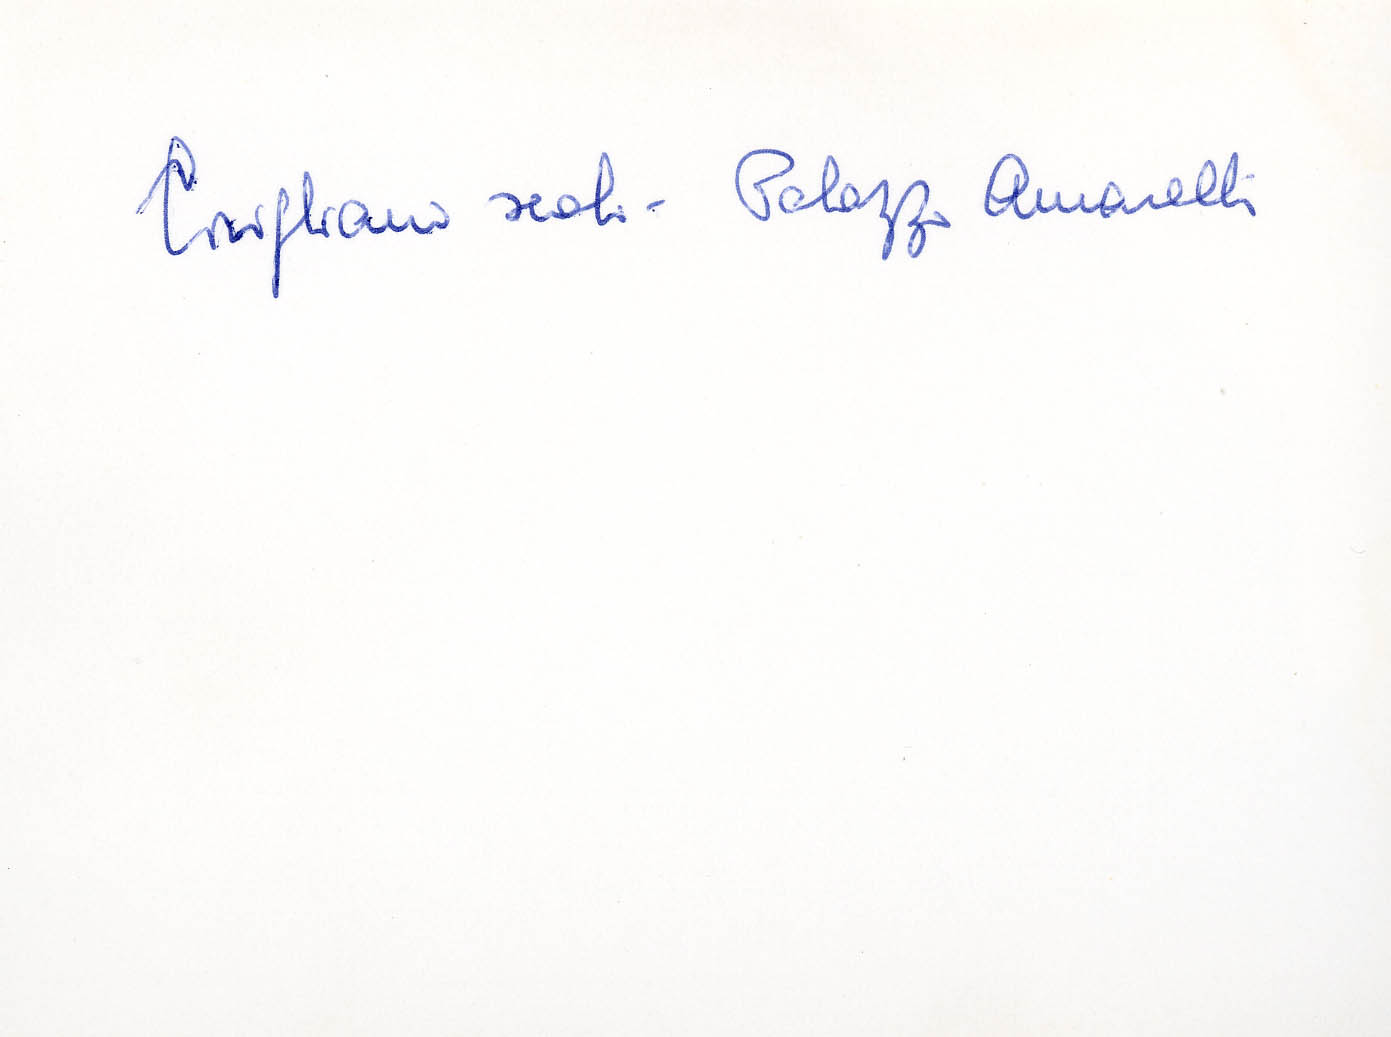 Corigliano scalo - Palazzo Amarelli